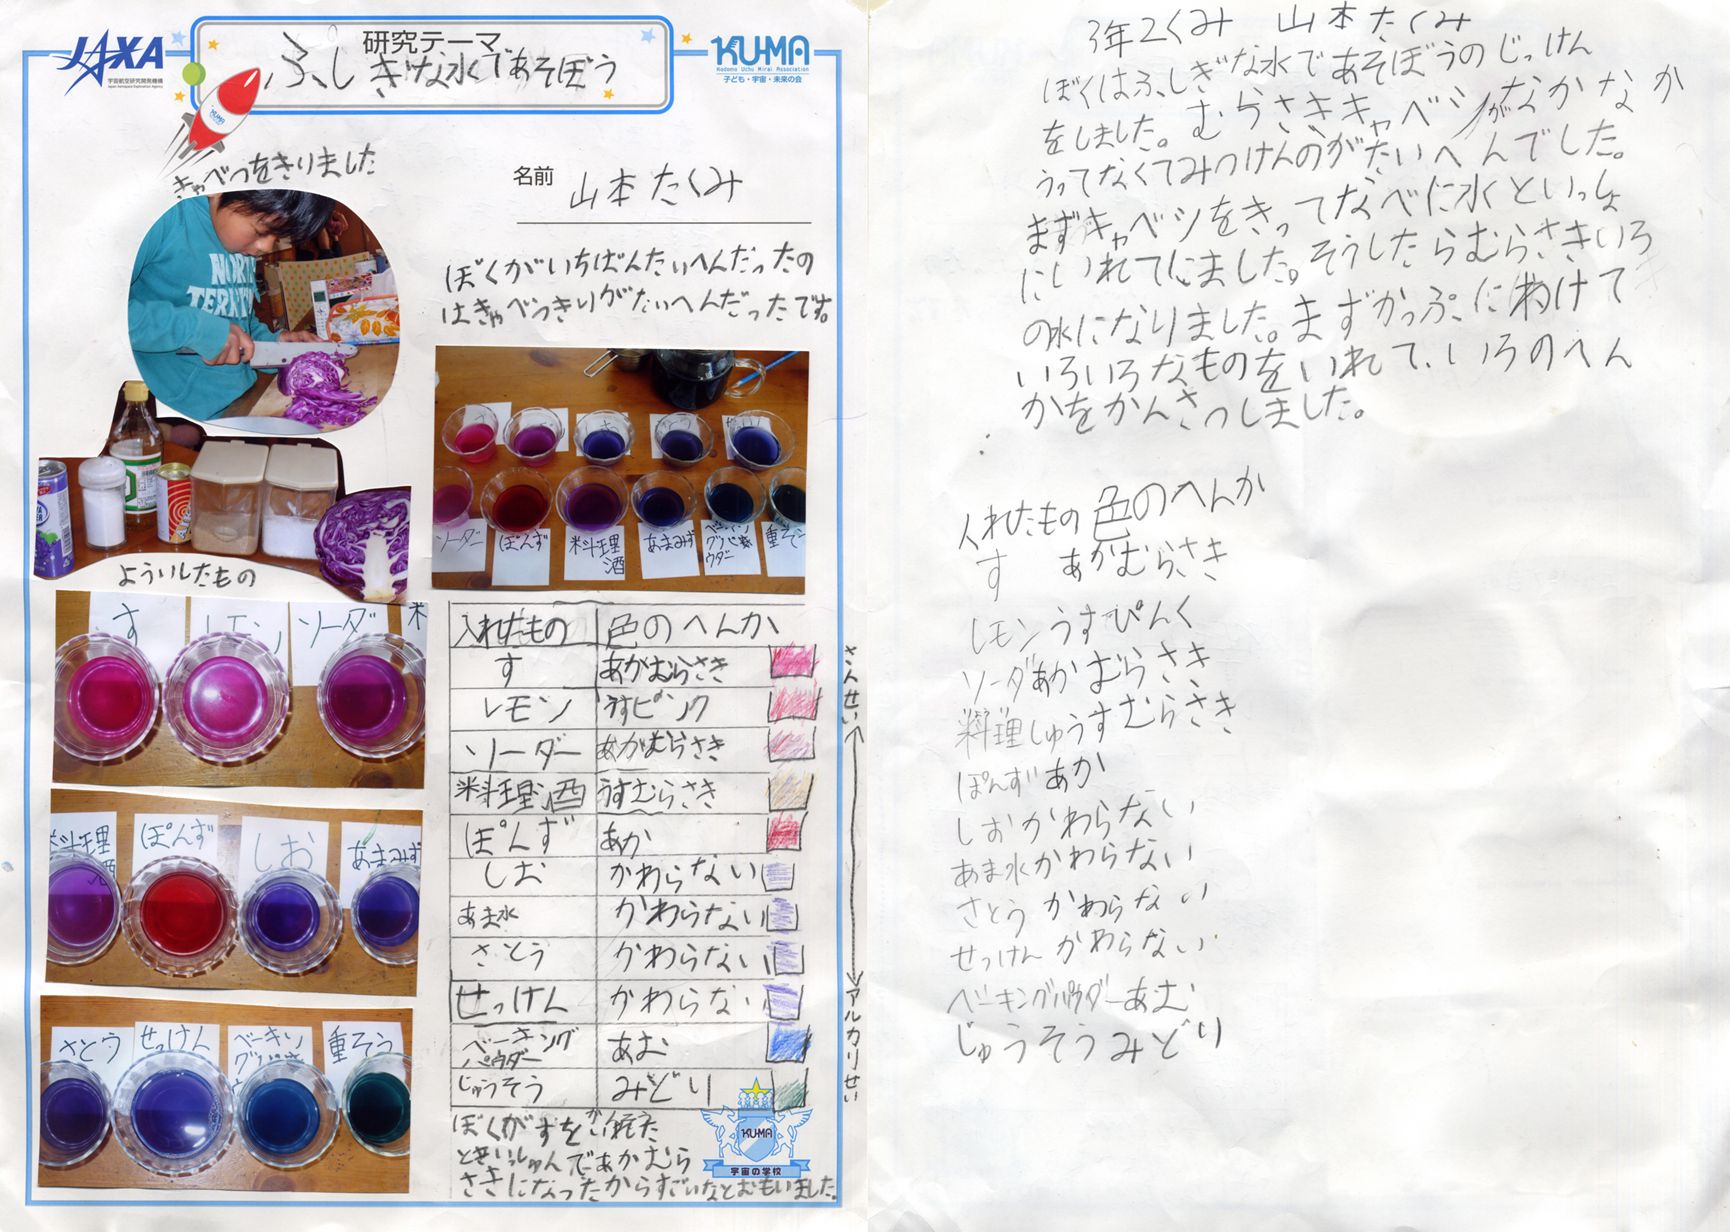 JAXA
宇宙航空研究開発機構
Japan Aerospace Exploration Agency
研究テーマ
ふしぎな水であそぼう
KUMA
Kodomo Uchu Mirai Association
子ども・宇宙・未来の会
KUMA
きゃべつをきりました
名前 山本たくみ
NORTH
TERRITORY
ぼくがいちばんたいへんだったの
はきゃべつきりがたいへんだったです。
よういしたもの
ソーダー
ぽんず
料理酒
あまみず
ベーキングパウダー
重そう
す
レモン
ソーダー
料理酒
ぽんず
しお
あまみず
さとう
せっけん
ベーキング
重そう
入れたもの 色のへんか
す あかむらさき
レモン うすピンク
ソーダー あかむらさき
料理酒 うすむらさき
ぽんず あか
しお かわらない
あま水 かわらない
さとう かわらない
せっけん かわらない
ベーキングパウダー あお
じゅうそう みどり
さんせい
アルカリせい
ぼくがすをいれた
ときいっしゅんであかむら
さきになったからすごいなとおもいました。
KUMA
宇宙の学校
3年2くみ 山本たくみ
ぼくはふしぎな水であそぼうのじっけん
をしました。むらさきキャベツがなかなか
うってなくてみつけんのがたいへんでした。
まずキャベツをきってなべに水といっしょ
にいれてにました。そうしたらむらさきいろ
の水になりました。まずかっぷにわけて
いろいろなものをいれて、いろのへん
かをかんさつしました。
入れたもの 色のへんか
す あかむらさき
レモン うすぴんく
ソーダ あかむらさき
料理しゅ うすむらさき
ぽんず あか
しお かわらない
あま水 かわらない
さとう かわらない
せっけん かわらない
ベーキングパウダー あお
じゅうそう みどり